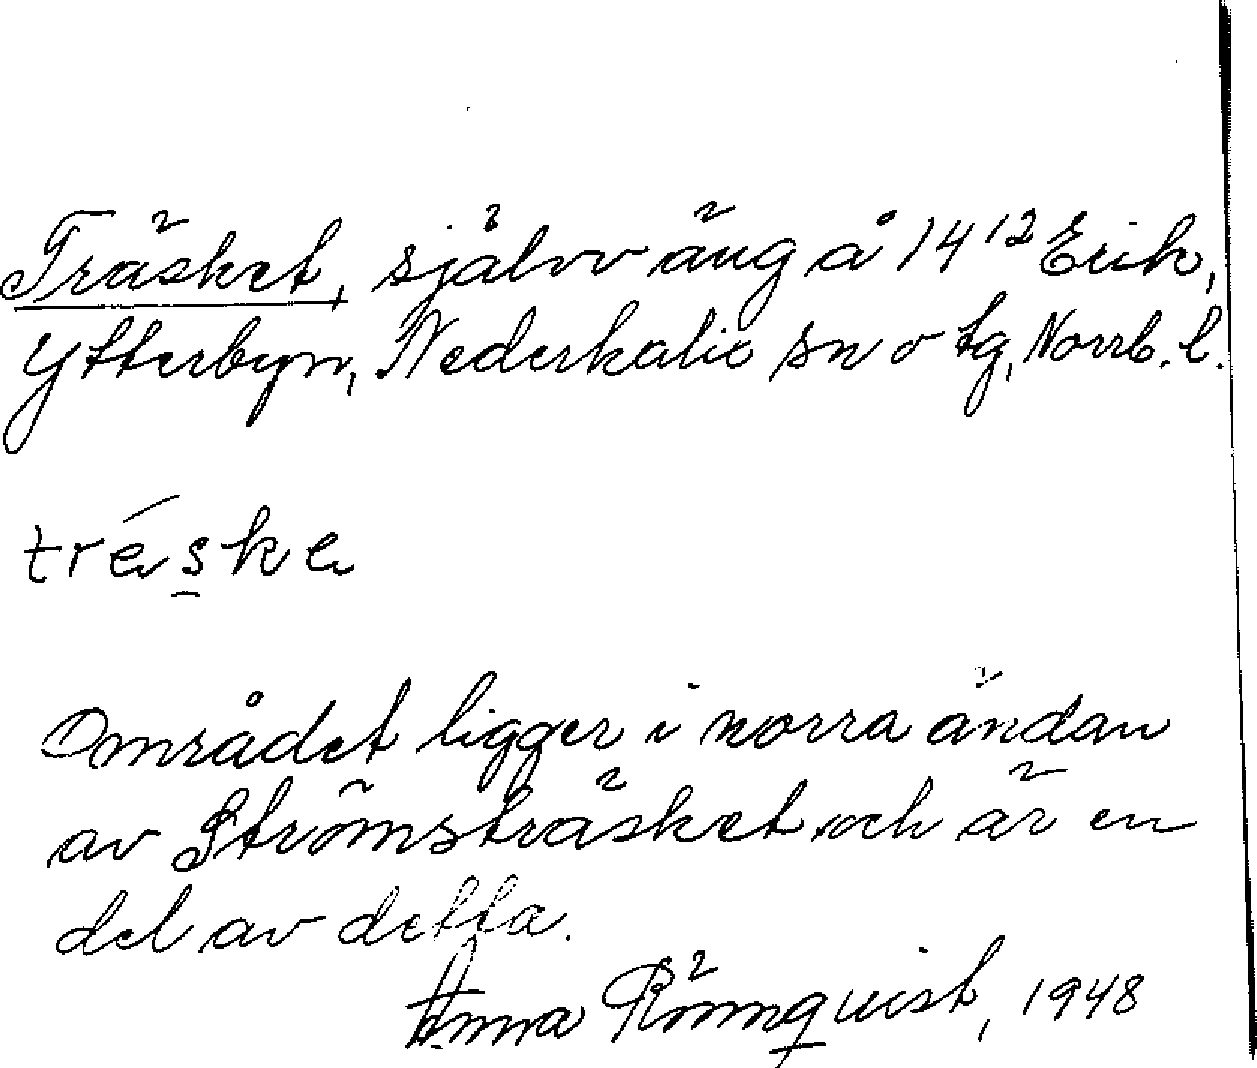 Träsket, självv äng å 14¹² Erik,
Ytterbyn, Nederkalix sn o tg, Norrb. l.
tréske
Området ligger i norra ändan
av Strömsträsket och är en
del av detta.
Anna Rönnquist, 1948